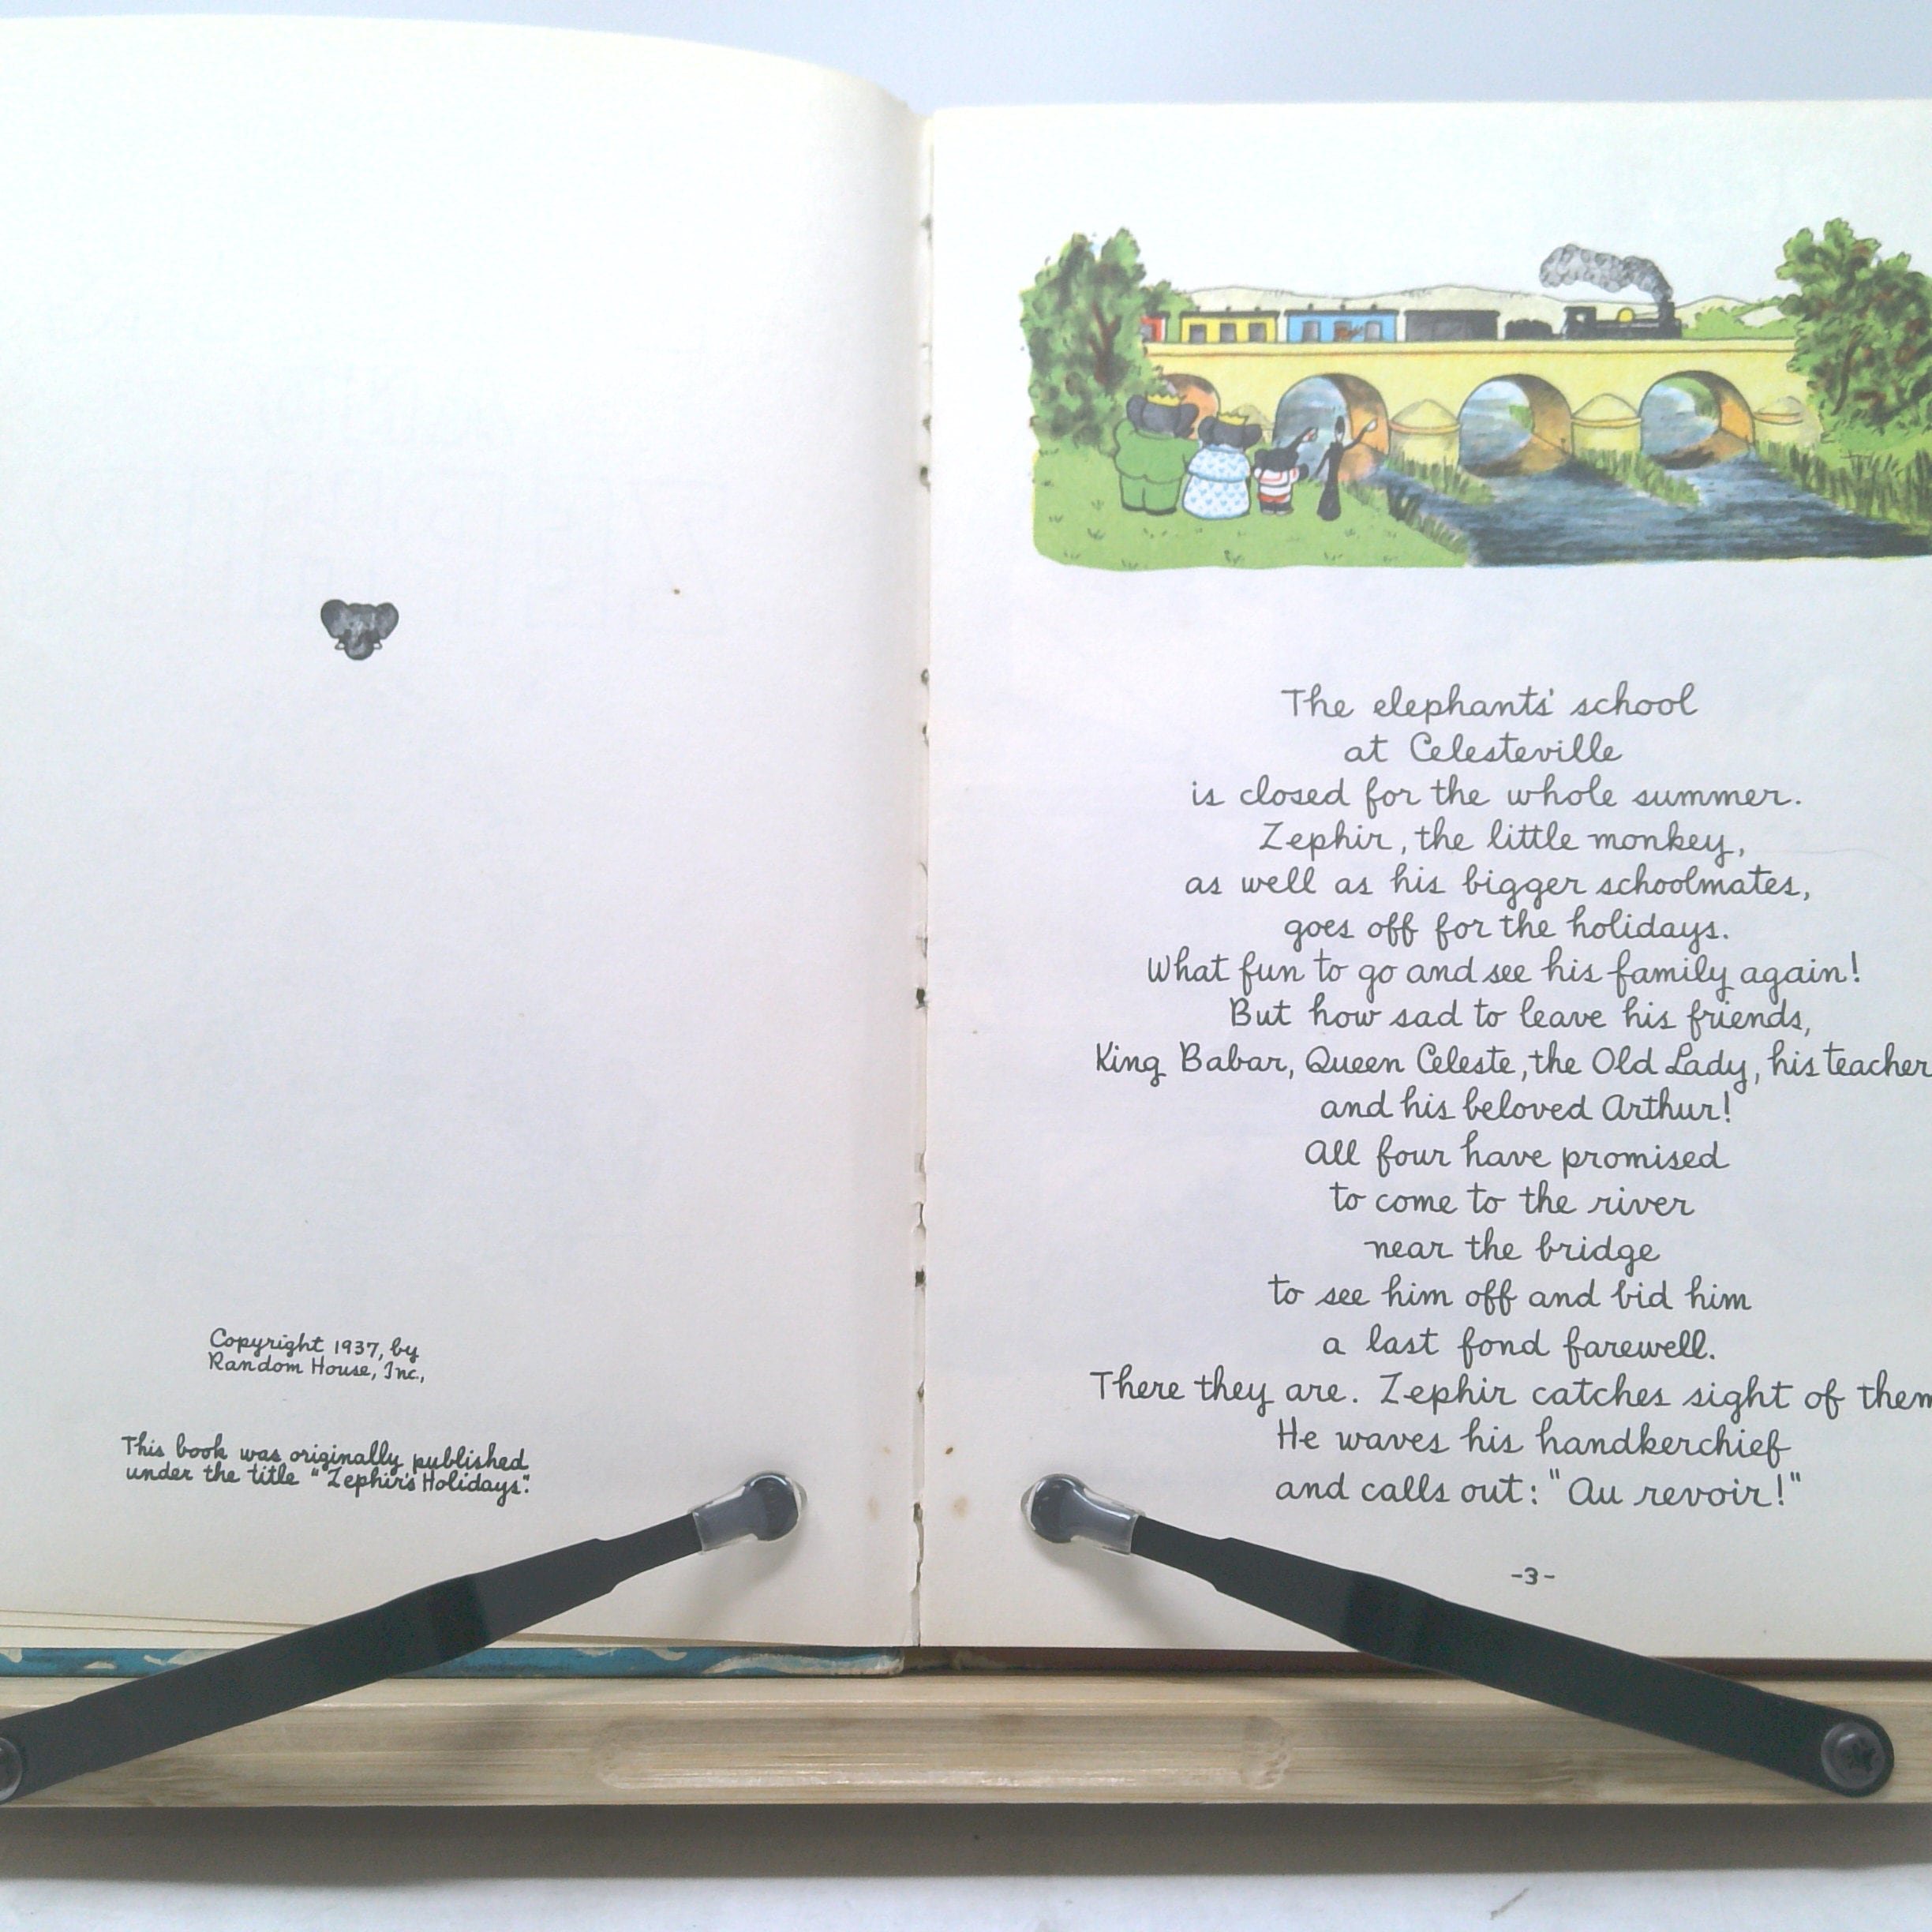 Copyright 1937, by
Random House, Inc.,
This book was originally published
under the title "Zephir's Holidays".
The elephants' school
at Celesteville
is closed for the whole summer.
Zephir, the little monkey,
as well as his bigger schoolmates,
goes off for the holidays.
What fun to go and see his family again!
But how sad to leave his friends,
King Babar, Queen Celeste, the Old Lady, his teacher
and his beloved Arthur!
All four have promised
to come to the river
near the bridge
to see him off and bid him
a last fond farewell.
There they are. Zephir catches sight of them
He waves his handkerchief
and calls out: "Au revoir!"
-3-